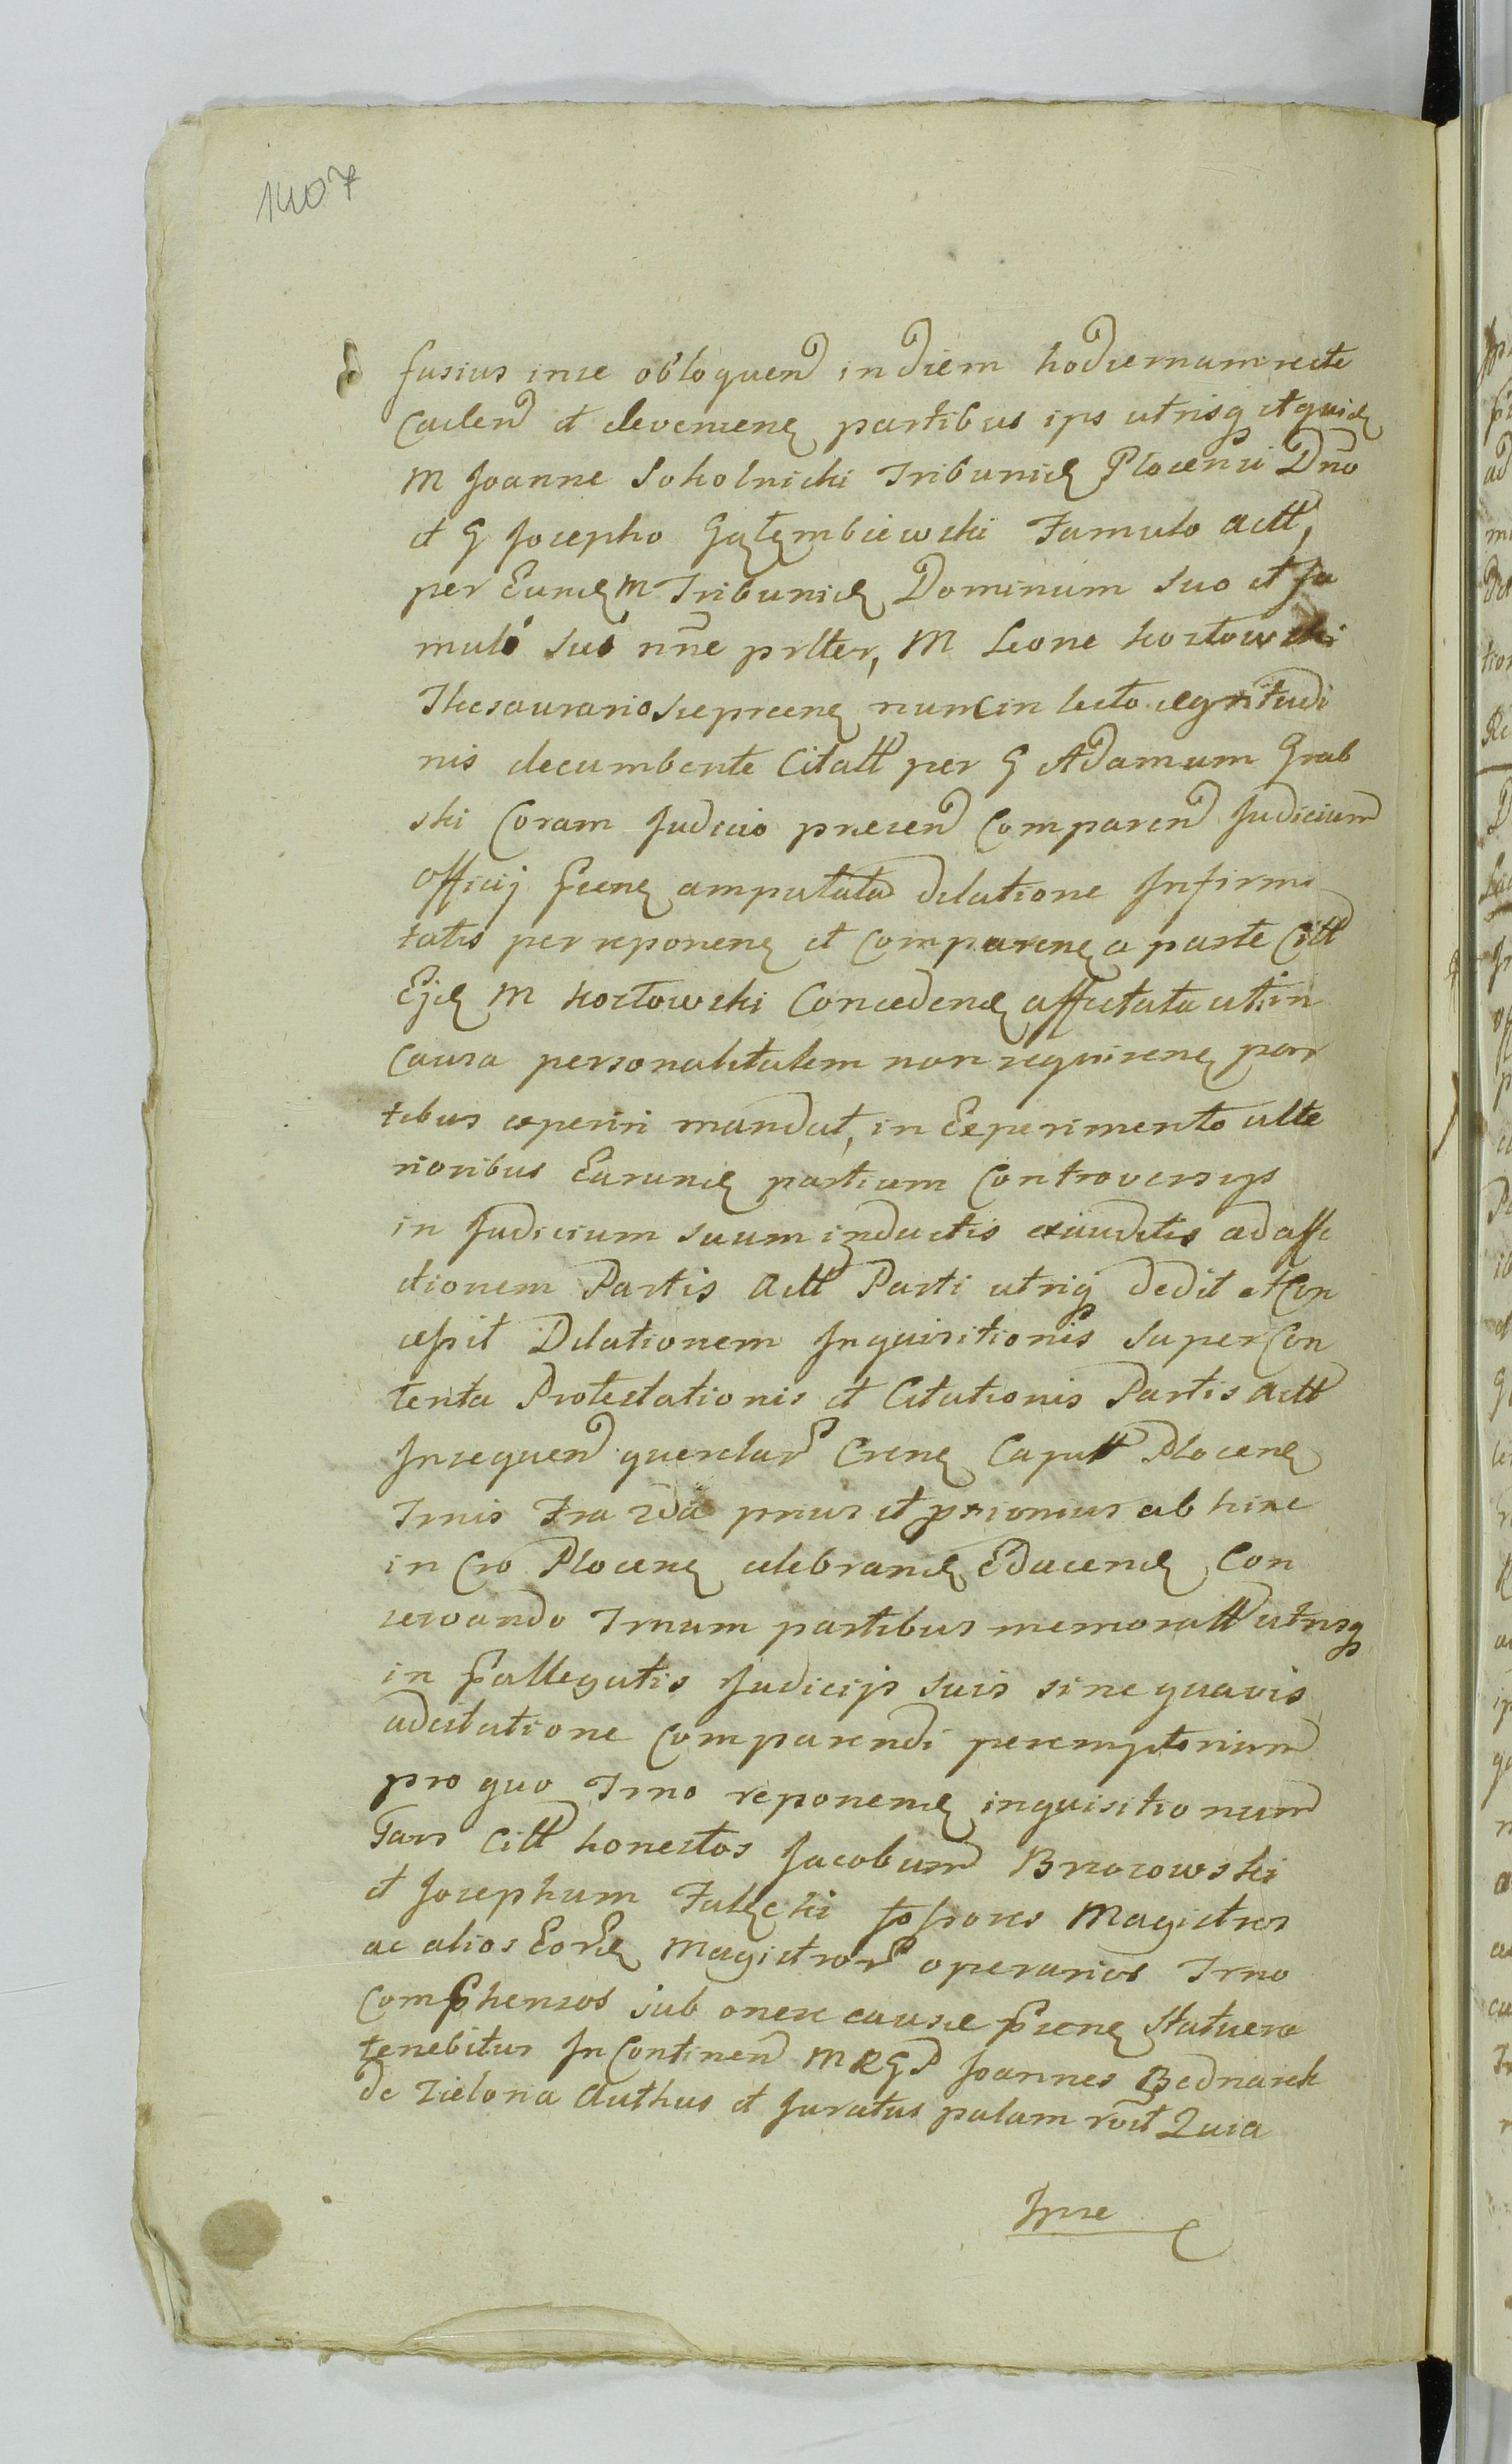 1407
fusius in se obloquen in diem hodiernam recte
Caden et devenienę partibus ips utrisq et quidę
M Joanne Sokolnicki Tribunidę Plocensi Dno
et G Josepho Gąłęmbiewski Famulo Actt,
per Eundę M Tribunidę Dominum suo et Fa
muli sui nne prltter, M Leone Kozłowski
Thesaurario Sieprcenę nunc in lecto ægritudi
nis decumbente Citatt per G Adamum Grab
ski Coram Judicio presen Comparen Judicium
Officij sui amputata dilatione Infirmi
tatis per reponenę et Comparenę a parte Citt
Ejdę M Kozłowski Concedendę affectata uti in
Causa personalitatem non requirenę par
tibus experiri mandat, in Experimento ulte
rioribus Earundę partium Controversijs
in Judicium suum inductis exauditis ad affe
ctionem Partis Actt Parti utriq dedit et Con
cessit Dilationem Inquisitionis super Con
tenta Protestationis et Citationis Partis Actt
Insequen querelar Crenę Capitt Plocenę
Trnis Fra 2da prius et proximius ab hinc
in Cro Plocenę celebrandę Educendę Con
servando Trnum partibus memoratt utrisq
in Pallegatis Judicijs suis sine quavis
adcitatione Comparendi peremptorium
pro quo Trno reponendę inquisitionum
Pars Citt honestos Jacobum Brzozowski
et Josephum Fałęcki fossores Magistros
ac alios Eordę Magistror operarios Trno
Comprhensos sub onere causæ Psenę statuere
tenebitur In Continen MRGD Joannes Bednarek
de Zielona Authus et Juratus palam roit Quia
Ipse